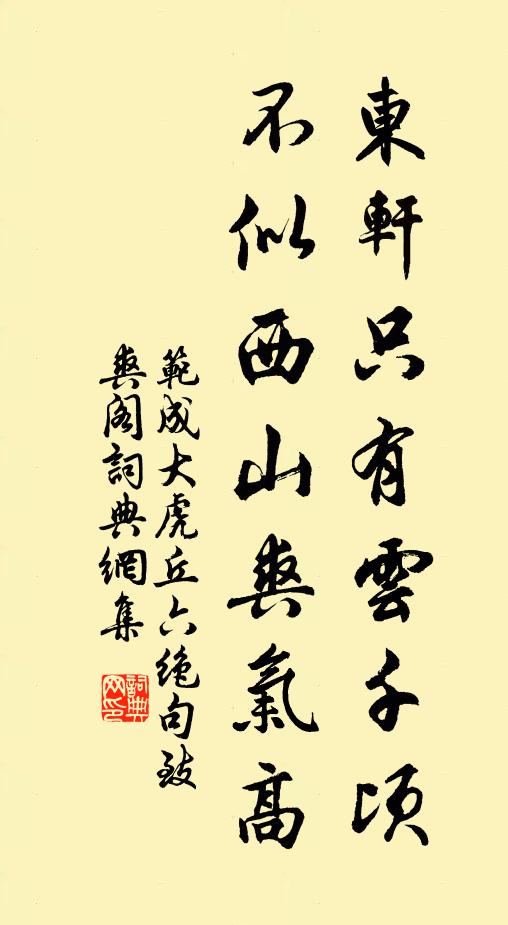 東軒只有雲千頃
不似西山爽氣高
範成大虎丘六绝句致
爽閣詞典網集
詞典
网印